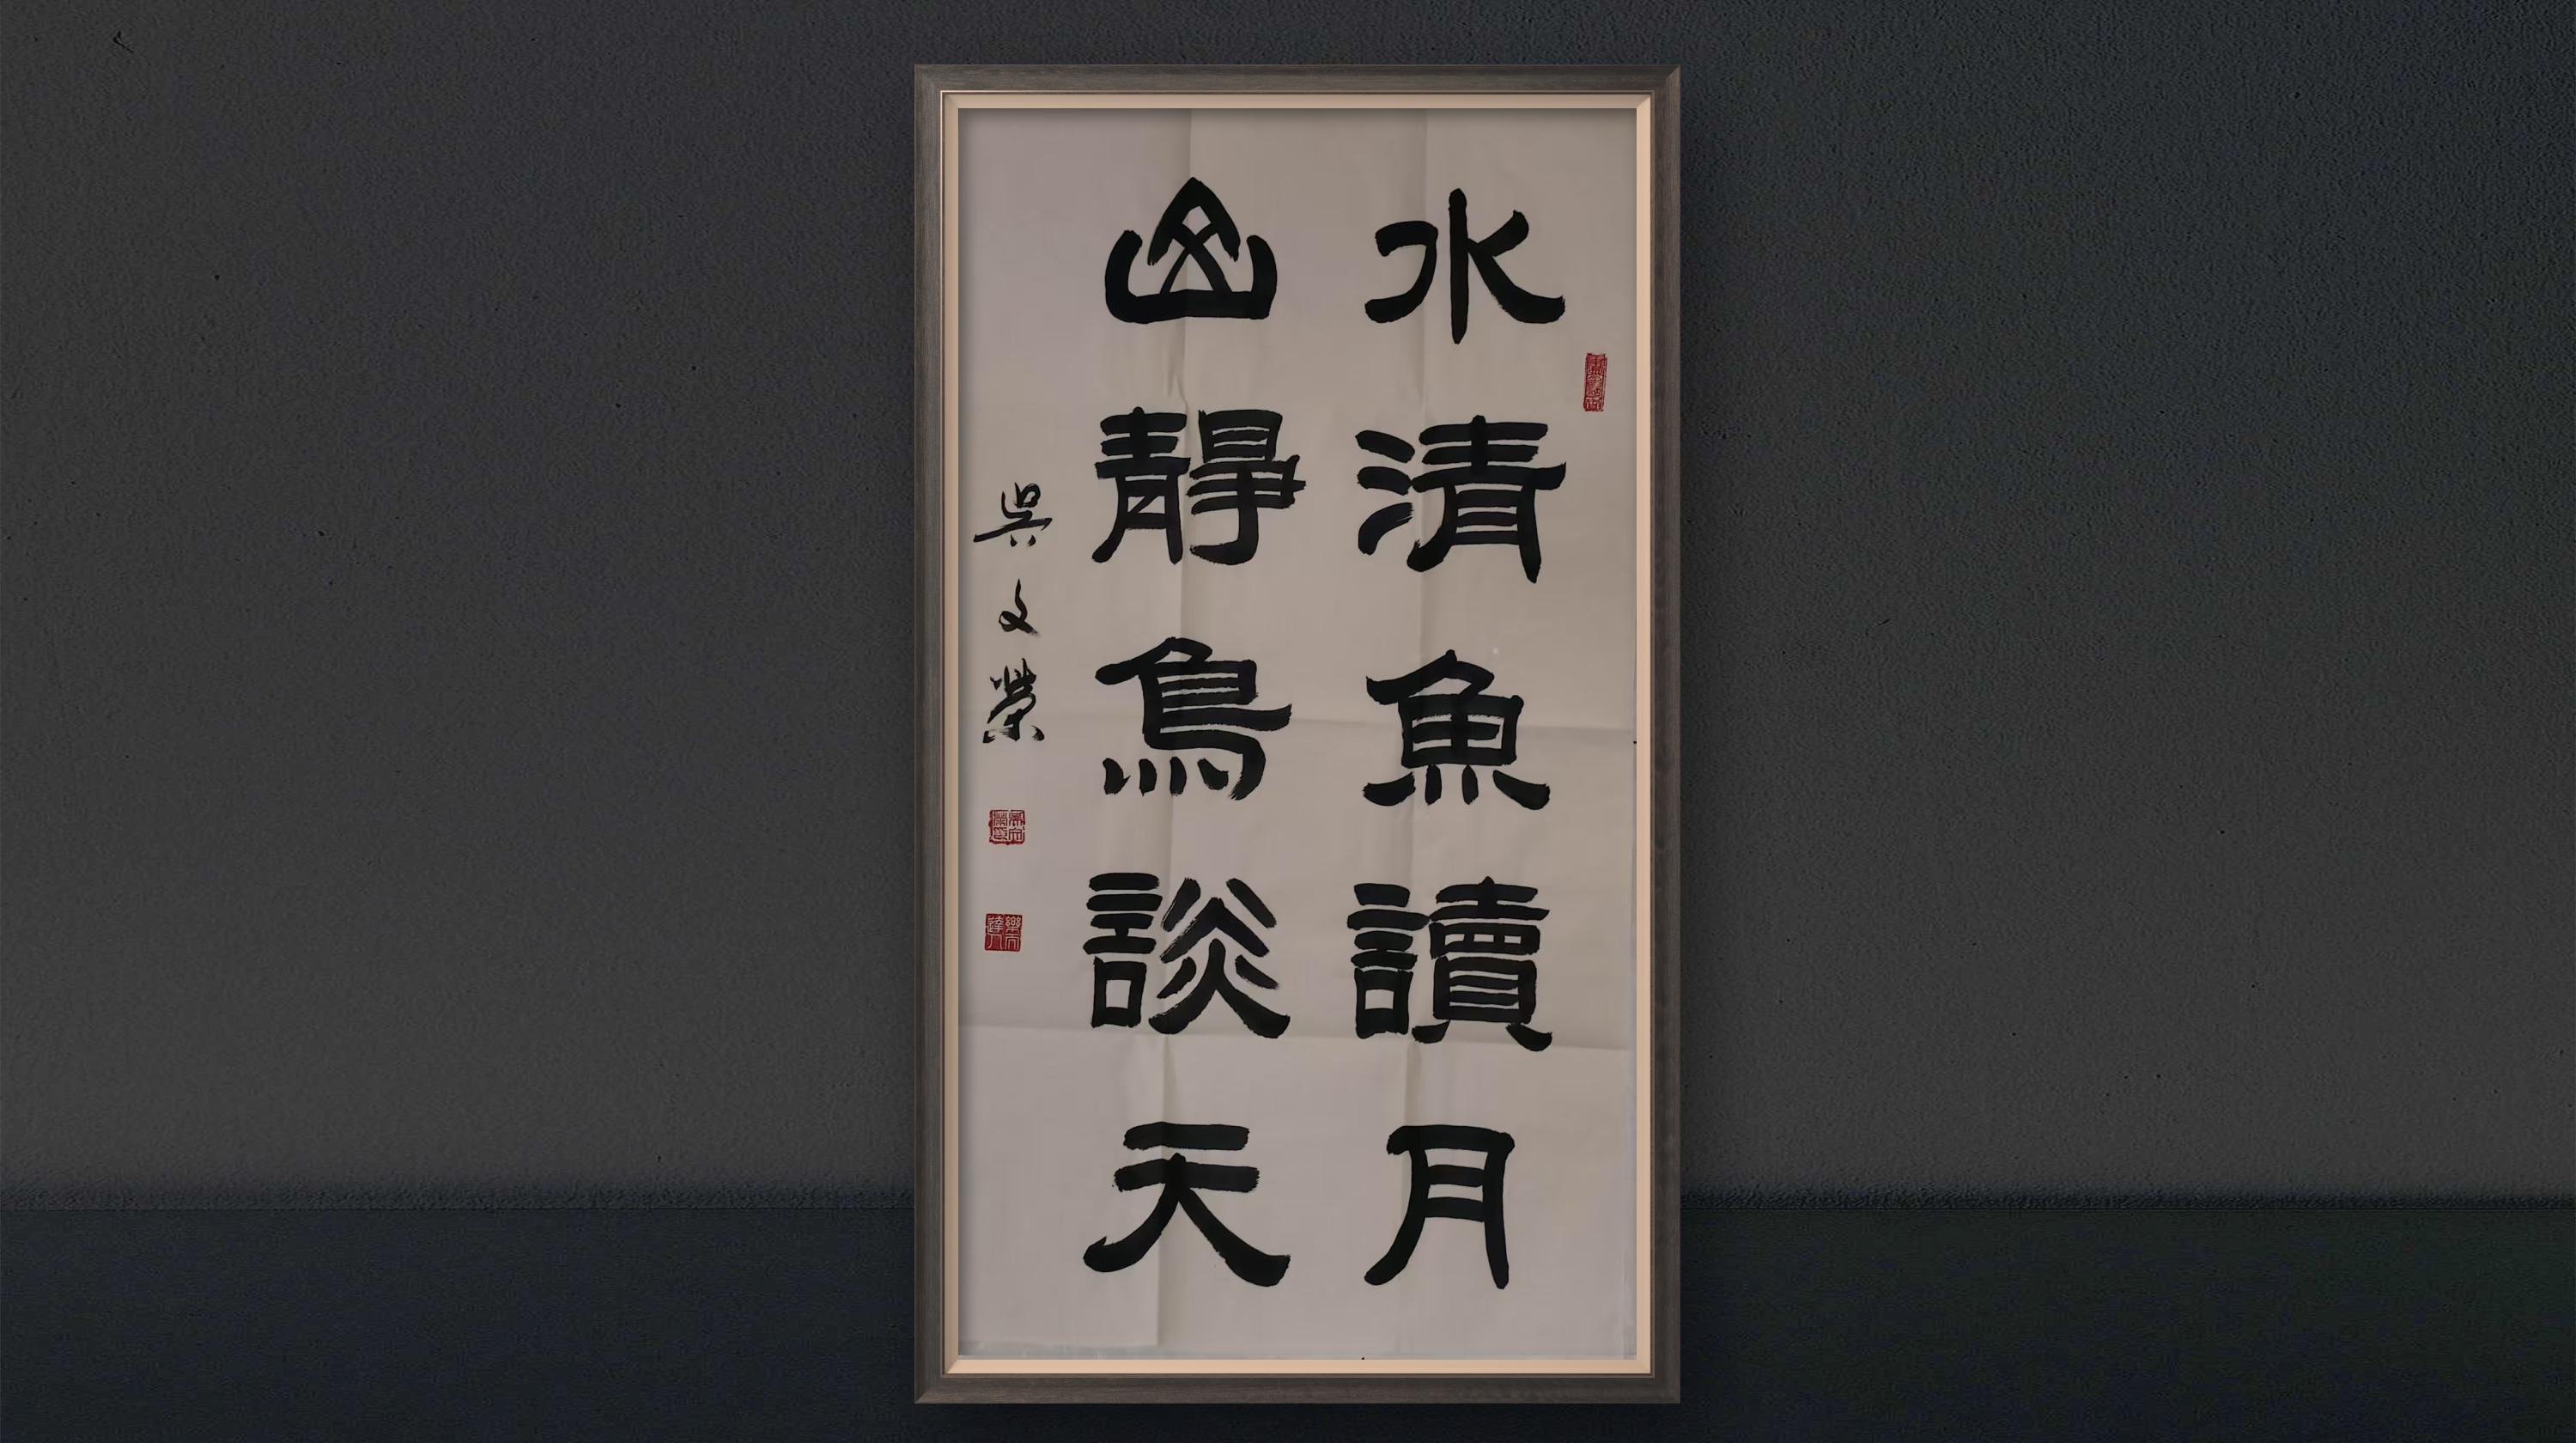 水清魚讀月
山靜鳥談天
吳文榮